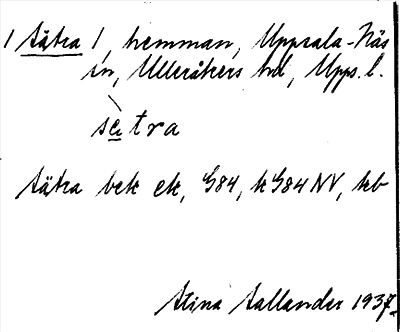 1 Sätra /, hemman, Uppsala-Näs
sn, Ulleråkers hd, Upps. l.
sètra
Sätra bek ek, G84, k G84 NV, kb
Stina Sallander 1937.